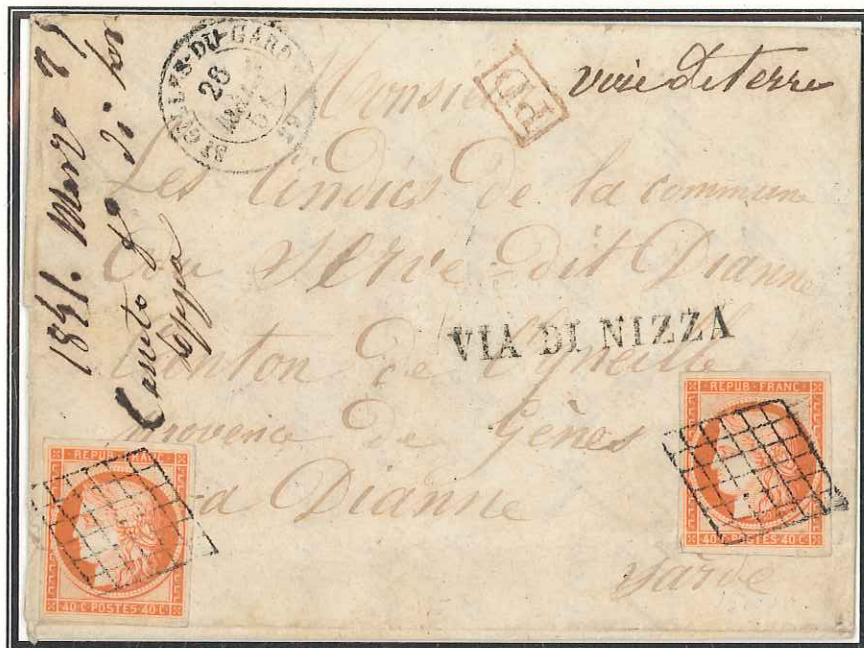 1851. Marzo
ST GILLES-DU-GARD
26
MARS
51
29
PD
voie de terre
Monsieur
Les Sindics de la commune
Dianne
VIA DI NIZZA
Canton de
province de Gênes
a Dianne
Sarde
REPUB·FRANC
40·C·POSTES·40·C
REPUB·FRANC
40·C·POSTES·40·C